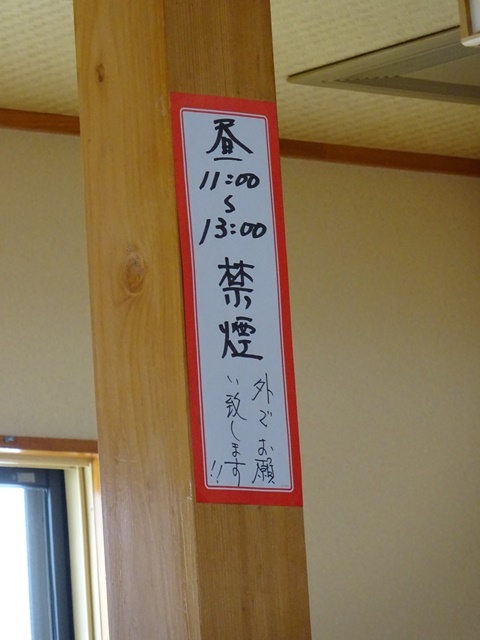 昼
11:00
〜
13:00
禁煙
外でお願
い致します!!